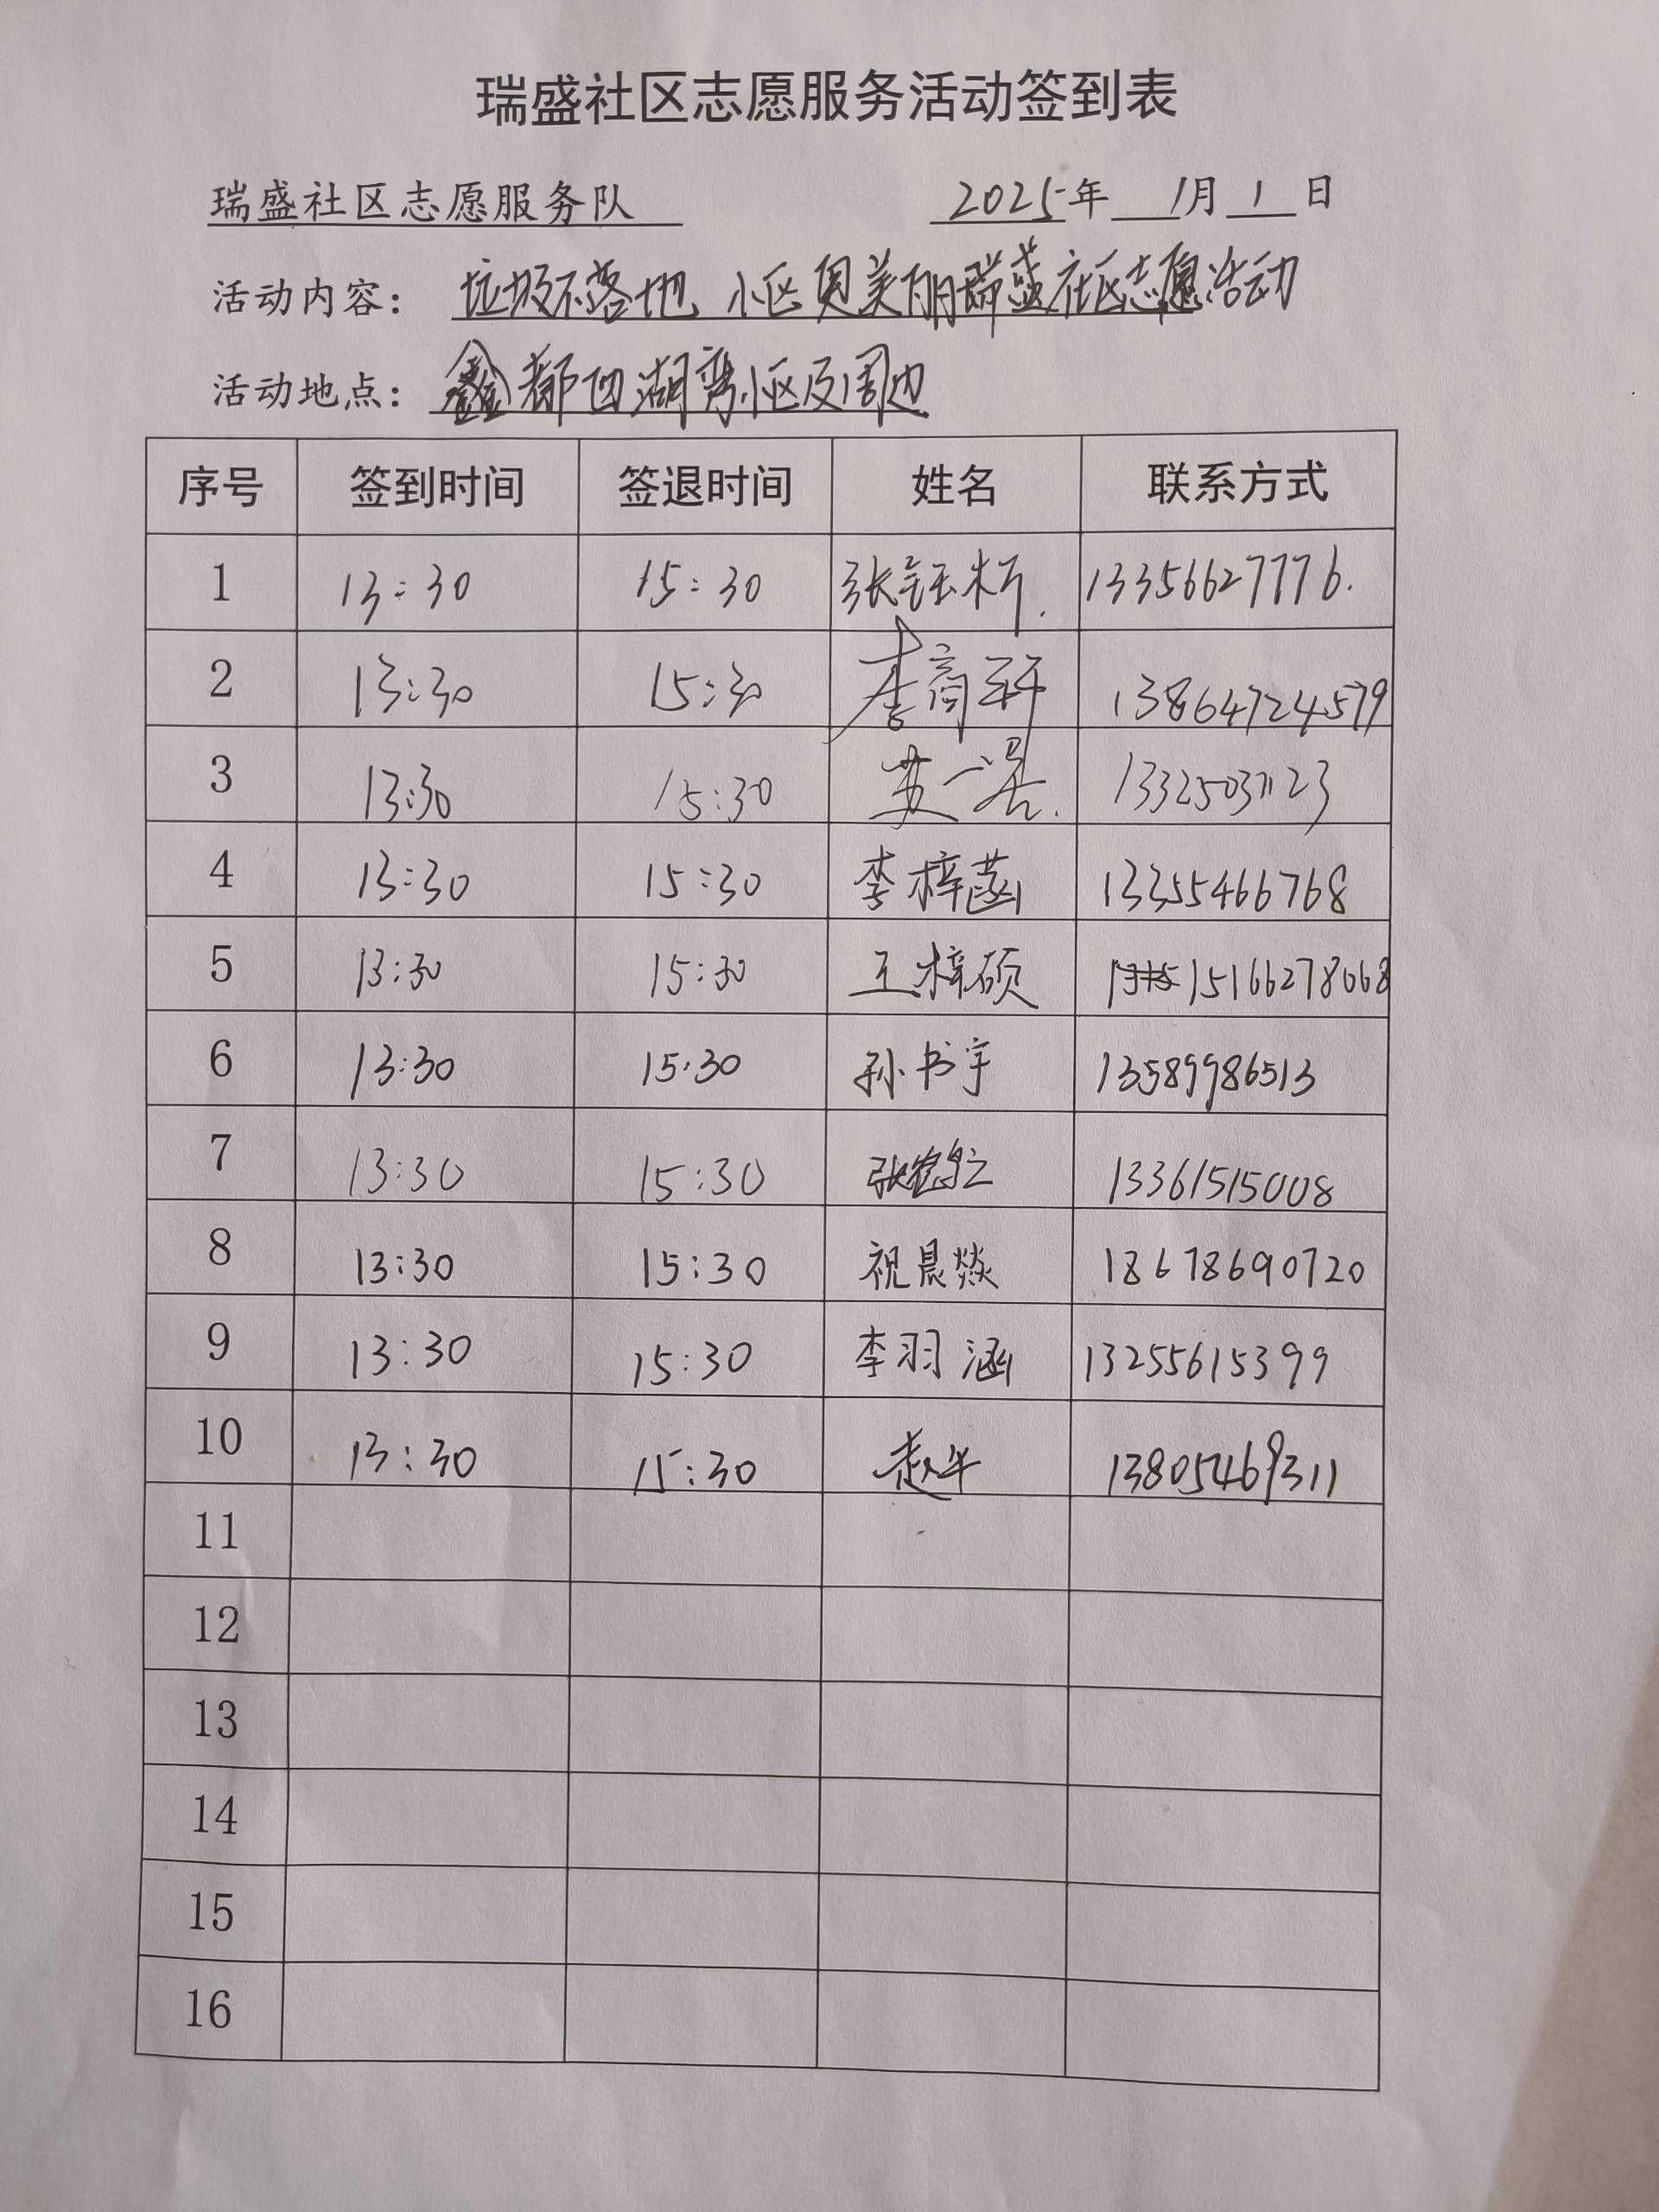 瑞盛社区志愿服务活动签到表
瑞盛社区志愿服务队 2025年 1月 1 日
活动内容: 垃圾不落地 小区更美丽瑞盛社区志愿活动
活动地点: 鑫都西湖湾小区及周边
序号 签到时间 签退时间 姓名 联系方式
1 13:30 15:30 张钰析. 13356627776.
2 13:30 15:30 李商轩 13864724579
3 13:30 15:30 苏一 13325037123
4 13:30 15:30 李梓菡 13355466768
5 13:30 15:30 王梓硕 15166278068
6 13:30 15:30 孙书宇 13589986513
7 13:30 15:30 张 13361515008
8 13:30 15:30 祝晨燚 18678690720
9 13:30 15:30 李羽涵 13255615399
10 13:30 15:30 赵华 13805469311
11
12
13
14
15
16